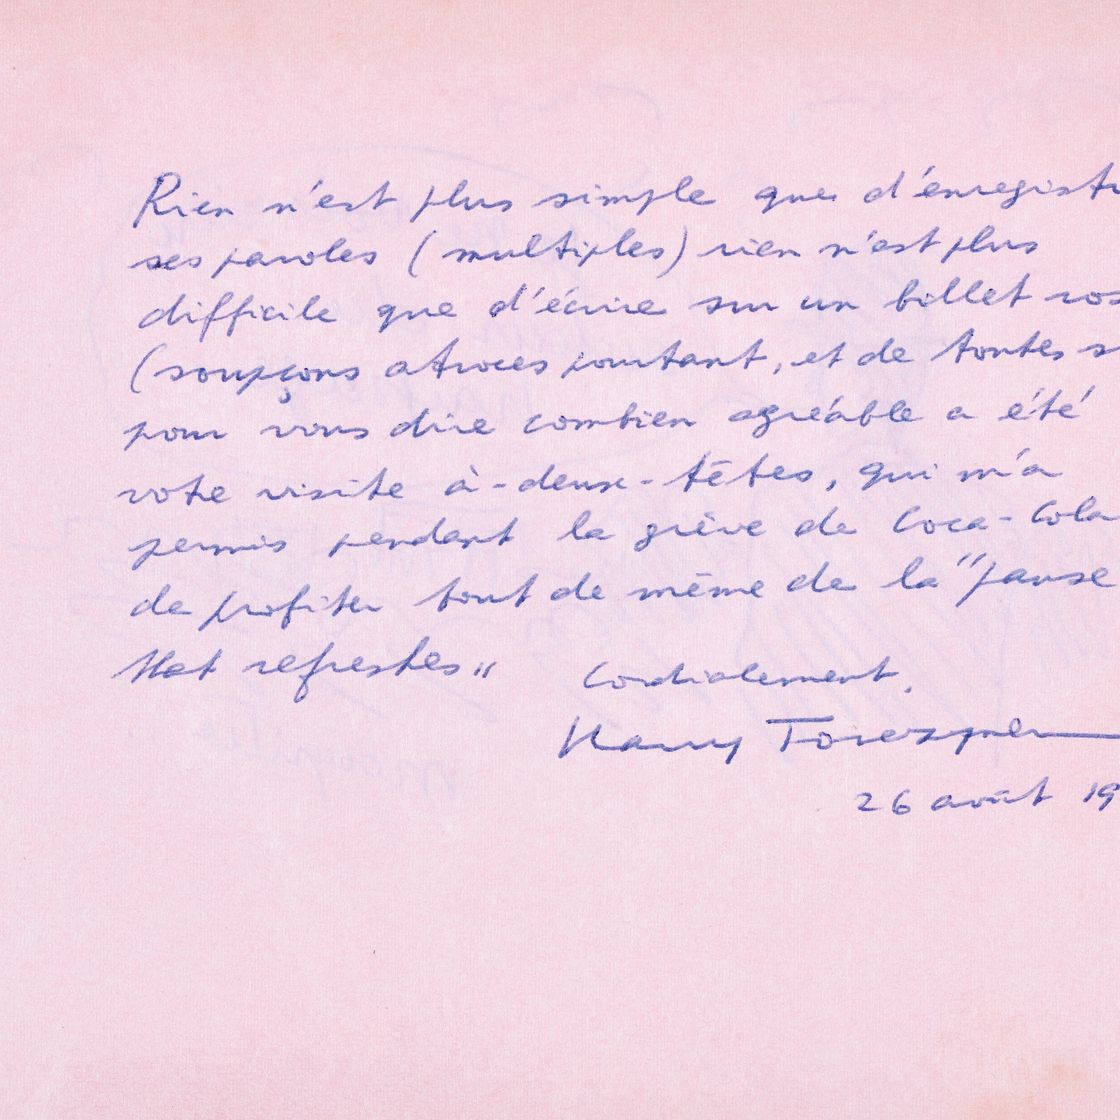 Rien n'est plus simple que d'enregistr
ses paroles (multiples) rien n'est plus
difficile que d'écrire sur un billet ros
(soupçons atroces pourtant, et de toutes s
pour vous dire combien agréable a été
votre visite à-deux-têtes, qui m'a
permis pendant la grève de Coca-Cola
de profiter tout de même de la "pause
that refreshes"
Cordialement,
Harry
26 août 19